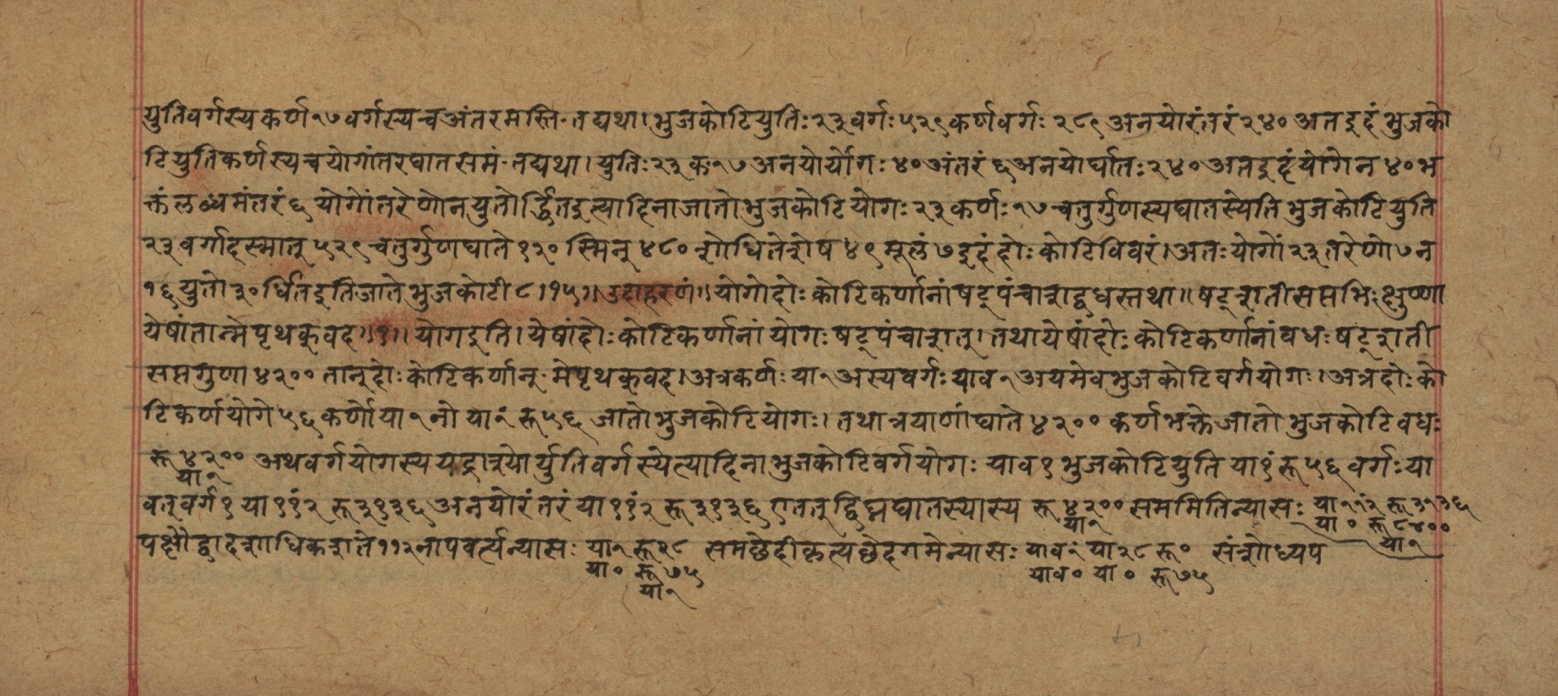 युतिवर्गस्य कर्ण १७ वर्गस्य च अंतरमस्ति तद्यथा। भुजकोटियुतिः २३ वर्गः ५२९ कर्णवर्गः २८९ अनयोरंतरं २४० अतइदं भुजको
टियुतिकर्णस्य च योगांतरघातसमं तद्यथा। युतिः २३ क १७ अनयोर्योगः ४० अंतरं ६ अनयोर्घातः २४० अतइदं योगेन ४० भ
क्तं लब्धमंतरं ६ योगोंतरेणोनयुतोर्द्धितइत्यादिना जातो भुजकोटियोगः २३ कर्णः १७ चतुर्गुणस्य घातस्येति भुजकोटियुति
२३ वर्गादस्मात् ५२९ चतुर्गुणघाते १२० स्मिन् ४८० शोधिते शेष ४९ मूलं ७ इदं दोः कोटिविवरं। अतः योगों २३ तरेणो ७ न
१६ युतो ३० र्धितइति जाते भुजकोटी ८। १५॥ उदाहरणं॥ योगो दोः कोटिकर्णानां षट्पंचाशद्वधस्तथा॥ षट्शती सप्तभिः क्षुण्णा
येषां तान्मे पृथक् वद॥१॥ योगइति। येषां दोः कोटिकर्णानां योगः षट्पंचाशत्। तथा येषां दोः कोटिकर्णानां वधः षट्शती
सप्तगुणा ४२०० तान् दोः कोटिकर्णान् मे पृथक् वद। अत्र कर्णः या १ अस्य वर्गः याव १ अयमेव भुजकोटिवर्गयोगः। अत्र दोः को
टिकर्णयोगे ५६ कर्णो या १ नो या १ं रू ५६ जातो भुजकोटियोगः। तथा त्रयाणां घाते ४२०० कर्णभक्ते जातो भुजकोटिवधः
रू ४२०० अथ वर्गयोगस्य यद्राश्योर्युतिवर्गस्येत्यादिना भुजकोटिवर्गयोगः याव १ भुजकोटियुति या १ं रू ५६ वर्गः या
या १
वत् वर्ग १ या ११ं२ रू ३१३६ अनयोरंतरं या ११ं२ रू ३१३६ एतत् द्विघ्नघातस्यास्य रू ४२०० सममिति न्यासः या ११ं२ रू ३१३६
या १ या ० रू ८४००
या १
पक्षौ द्वादशाधिकशते ११२ नापवर्त्य न्यासः या १ रू २८ समछेदीकृत्य छेदगमे न्यासः याव १ं या २८ रू ० संशोध्य प
या ० रू ७५ याव ० या ० रू ७५
या १